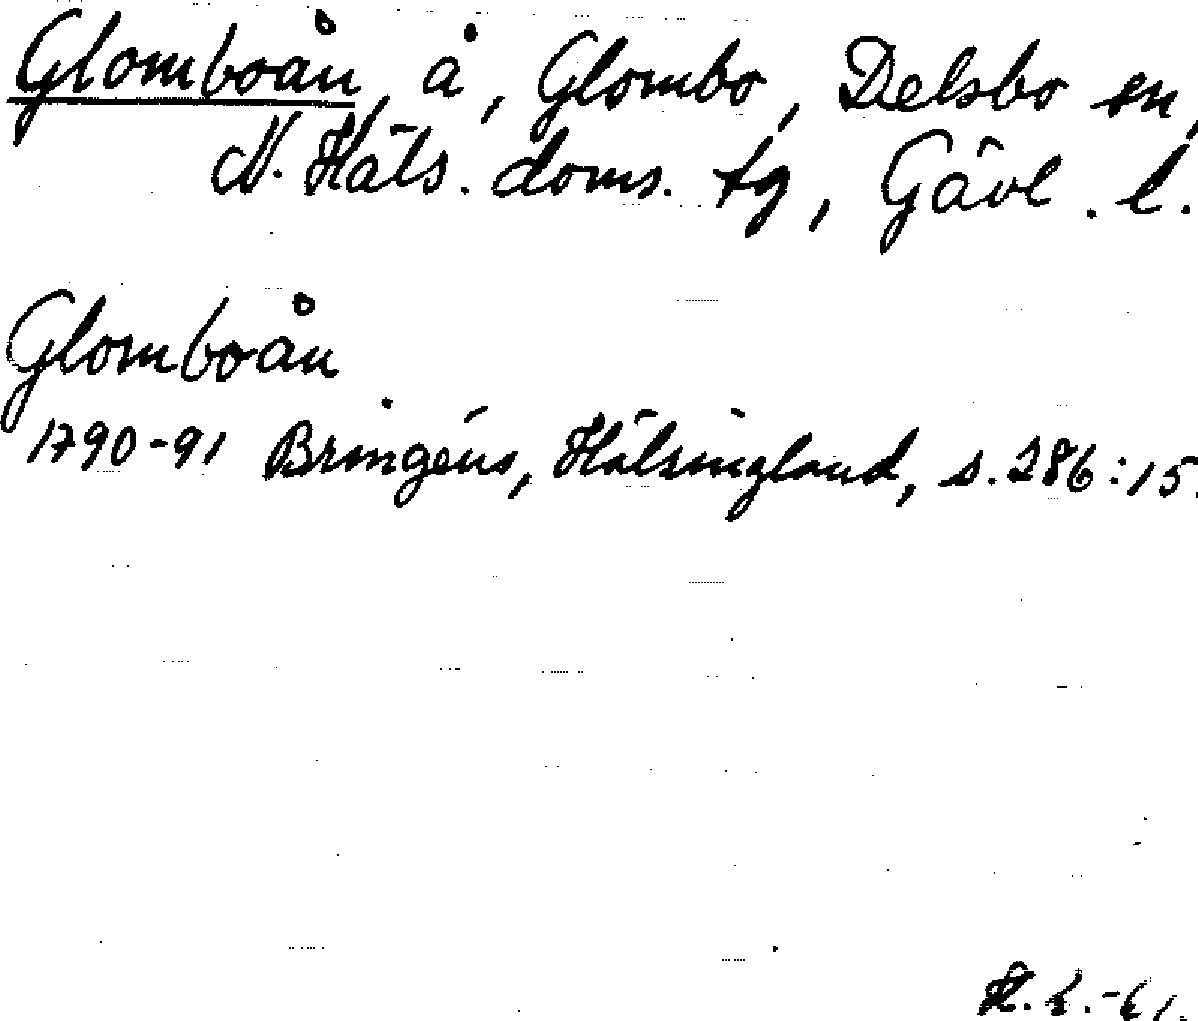 Glomboån, å, Glombo, Delsbo sn,
N. Häls. doms. tg, Gävl. l.
Glomboån
1790-91 Bringéus, Hälsingland, s. 286:15.